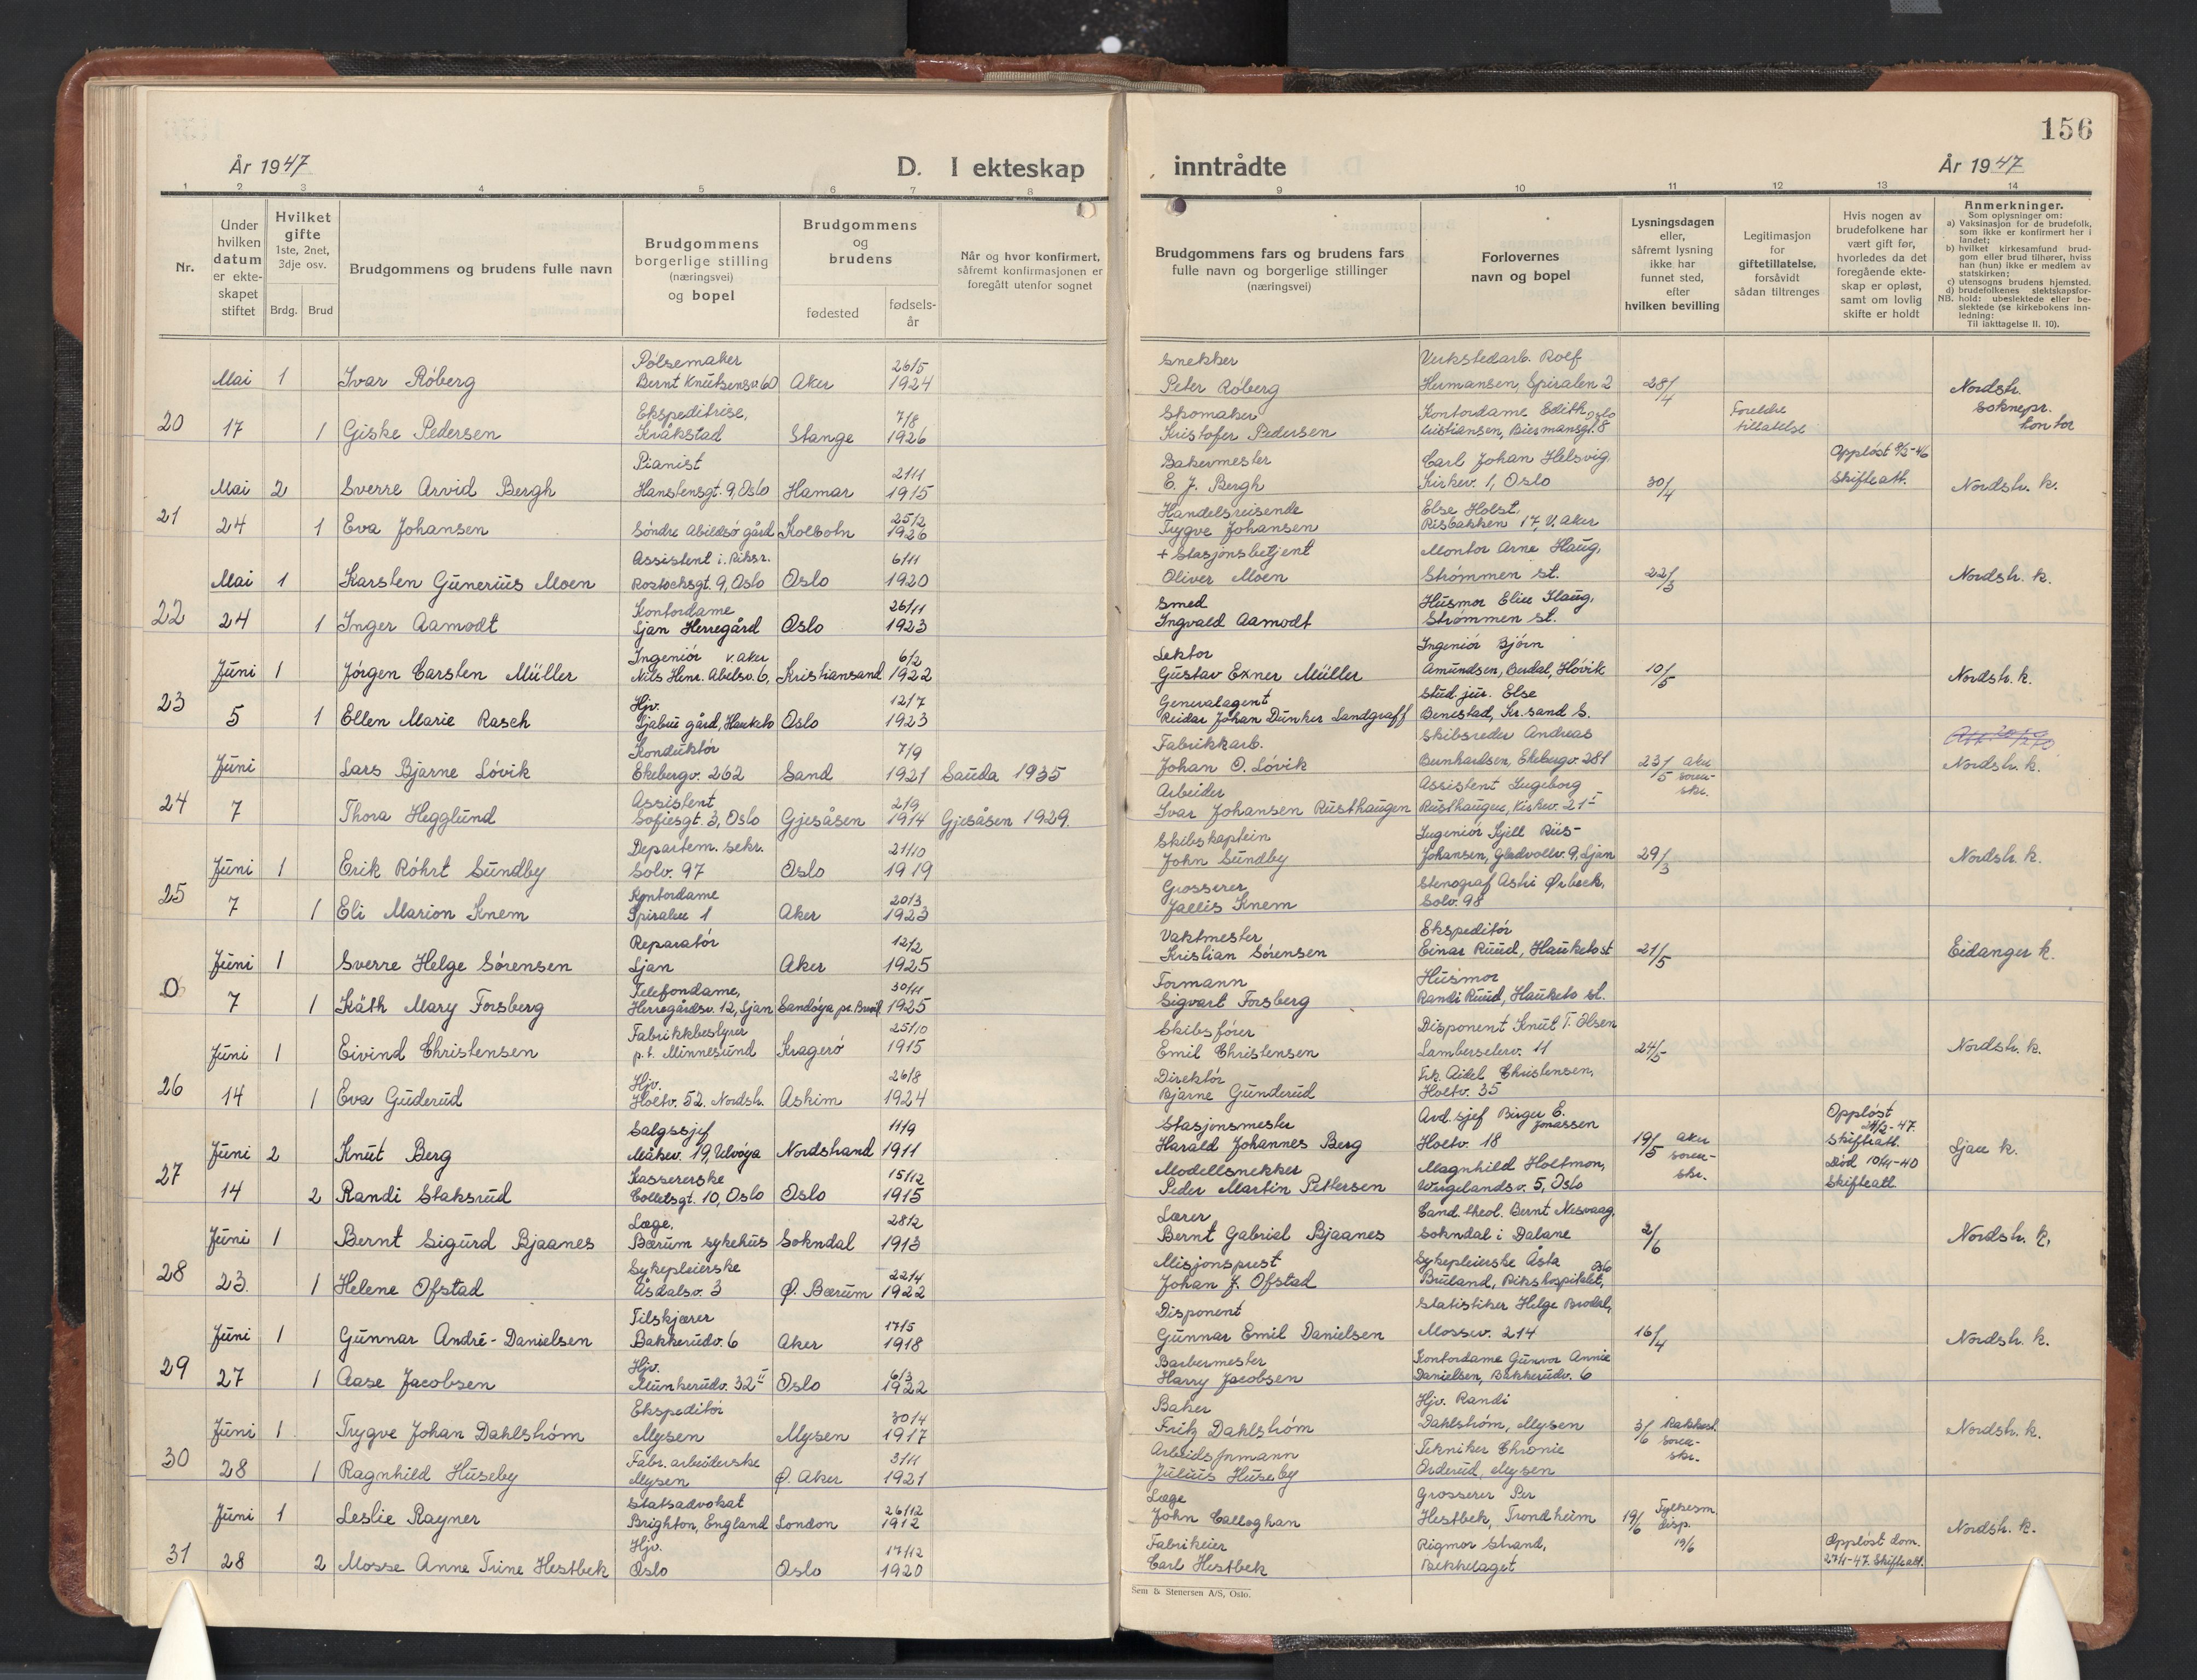 156
År 1947
D. I ekteskap
inntrådte
År 1947
1 2 3 4 5 6 7 8
9 10 11 12 13 14
Nr.
Under hvilken datum er ekteskapet stiftet
Hvilket gifte
1ste, 2net, 3dje osv.
Brdg. Brud
Brudgommens og brudens fulle navn
Brudgommens borgerlige stilling (næringsvei) og bopel
Brudgommens og brudens
fødested
fødsels-år
Når og hvor konfirmert, såfremt konfirmasjonen er foregått utenfor sognet
Brudgommens fars og brudens fars fulle navn og borgerlige stillinger (næringsvei)
Forlovernes navn og bopel
Lysningsdagen eller, såfremt lysning ikke har funnet sted, efter hvilken bevilling
Legitimasjon for giftetillatelse, forsåvidt sådan tiltrenges
Hvis nogen av brudefolkene har vært gift før, hvorledes da det foregående ekteskap er opløst, samt om lovlig skifte er holdt
Anmerkninger.
Som oplysninger om:
a) Vaksinasjon for de brudefolk, som ikke er konfirmert her i landet;
b) hvilket kirkesamfund brudgom eller brud tilhører, hviss han (hun) ikke er medlem av statskirken;
c) utensogns brudens hjemsted.
d) brudefolkenes slektskapsforhold: ubeslektede eller beslektede (se kirkebokens innledning:
NB.
Til iakttagelse II. 10).
20
Mai 1 Ivar Röberg Pølsemaker Bernt Knutsensv. 60 Aker 26/5 1924 Snekker Peter Röberg Verkstedarb. Rolf Hermansen, Spiralen 2 28/4 Nordstr. Soknepr. kontor
17 1 Giske Pedersen Ekspeditrise, Kråkstad Stange 7/8 1926 Skomaker Kristofer Pedersen Kontordame Edith Cristiansen, Biermansgt. 8 Oslo Foreldre tillatelse
21
Mai 2 Sverre Arvid Bergh Pianist Hanstensgt. 9, Oslo Hamar 2/11 1915 Bakermester E. J. Bergh Carl Johan Helsvig Kirkev. 1, Oslo 30/4 Oppløst Skifteatt. Nordstr. k.
24 1 Eva Johansen Söndre Abildsö gård Kolbotn 25/2 1926 Handelsreisende Trygve Johansen Else Holst. Risbakken 17, V. Aker
22
Mai 1 Karsten Gunerius Moen Assistent i. Riksr. Rostocksgt. 9, Oslo Oslo 6/11 1920 + Stasjonsbetjent Oliver Moen Montør Arne Haug, Strömmen st. 22/3 Nordstr. k.
24 1 Inger Aamodt Kontordame Ljan Herregård Oslo 26/11 1923 Smed Ingvald Aamodt Husmor Elise Haug, Strömmen st.
23
Juni 1 Jörgen Carsten Müller Ingeniör V. Aker Nils Henr. Abelsv. 6, Kristiansand 6/2 1922 Lektor Gustav Exner Müller Ingeniör Björn Amundsen, Berdal, Hövik 10/5 Nordstr. k.
5 1 Ellen Marie Rasch Hjv. Ljabru gård, Hauketo Oslo 12/7 1923 Generalagent Reidar Johan Dunker Landgraff Stud. jur. Else Benestad, Kr. sand S.
24
Juni Lars Bjarne Lövik Konduktör Ekebergv. 262 Sand 7/9 1921 Sauda 1935 Fabrikkarb. Johan O. Lövik Skibsreder Andreas Bernhardsen, Ekebergv. 281 23/5 Aker soren-skr. Nordstr. k.
7 Thora Hegglund Assistent Sofiesgt. 3, Oslo Gjesåsen 2/9 1914 Gjesåsen 1929. Arbeider Ivar Johansen Rusthaugen Assistent Ingeborg Rusthaugen, Kirkev. 21 I
25
Juni 1 Erik Röhrt Sundby Departem. sekr. Solv. 97 Oslo 21/10 1919 Skibskaptein John Sundby Ingeniör Kjell Riis-Johansen, Gladvollv. 9, Ljan 29/3 Nordstr. k.
7 1 Eli Marion Knem Kontordame Spiralen 1 Aker 20/3 1923 Grosserer Jaelis Knem Stenograf Astri Ørbeck, Solv. 98
0
Juni 1 Sverre Helge Sörensen Reparatör Ljan Aker 12/2 1925 Vaktmester Kristian Sörensen Ekspeditör Einar Ruud, Hauketo st 21/5 Eidanger k.
7 1 Käth Mary Forsberg Telefondame, Herregårdsv. 12, Ljan Sandöya pr. Brevik 30/11 1925 Formann Sigvart Forsberg Husmor Randi Ruud, Hauketo st.
26
Juni 1 Eivind Christensen Fabrikkbestyrer p.t. Minnesund Kragerö 25/10 1915 Skibsförer Emil Christensen Disponent Knut T. Olsen Lambersetev. 11 24/5 Nordstr. k.
14 1 Eva Guderud Hjv. Holtv. 52. Nordstr. Askim 26/8 1924 Direktör Bjarne Gunderud Frk. Aidel Christensen, Holtv. 35
27
Juni 2 Knut Berg Salgssjef Måkev. 19, Ulvöya Nordstrand 11/9 1911 Stasjonsmester Harald Johannes Berg Avd. sjef Birger E. Jonassen Holtv. 18 19/5 Aker soren-skr. Oppløst Skifteatt. Ljan k.
14 2 Randi Staksrud Kassererske Colletsgt. 10, Oslo Oslo 15/12 1915 Modellsnekker Peder Martin Pettersen Magnhild Holtmon, Wergelandsv. 5, Oslo Død 10/4-40 Skifteatt.
28
Juni 1 Bernt Sigurd Bjaanes Læge, Bærum sykehus Sokndal 28/2 1913 Lærer Bernt Gabriel Bjaanes Cand. theol. Bernt Nesvaag, Sokndal i Dalane 2/6 Nordstr. k.
23 1 Helene Ofstad Sykepleierske Åsdalsv. 3 Ø. Bærum 22/4 1922 Misjonsprest Johan J. Ofstad Sykepleierske Åsta Bruland, Rikshospitalet, Oslo
29
Juni 1 Gunnar André-Danielsen Tilskjærer Bakkerudv. 6 Aker 17/5 1918 Disponent Gunnar Emil Danielsen Statistiker Helge Brodal, Mossev. 214 16/4 Nordstr. k.
27 1 Aase Jacobsen Hjv. Munkerudv. 32 II Oslo 6/3 1922 Barbermester Harry Jacobsen Kontordame Gunvor Annie Danielsen, Bakkerudv. 6
30
Juni 1 Trygve Johan Dahlström Ekspeditör Mysen Mysen 30/4 1917 Baker Fritz Dahlström Hjv. Randi Dahlström, Mysen 3/6 Rakkest. soren-skr. Nordstr. k.
28 1 Ragnhild Huseby Fabr. arbeiderske Mysen Ø. Aker 3/11 1921 Arbeidsformann Julius Huseby Tekniker Chronie Orderud, Mysen
31
Juni 1 Leslie Rayner Statsadvokat Brighton, England London 26/12 1912 Læge John Calloghan Grosserer Per Hestbek, Trondheim 19/6 Fylkesm. disp. 19/6 Nordstr. k.
28 2 Mosse Anne Trine Hestbek Hjv. Oslo Oslo 17/12 1920 Fabrikeier Carl Hestbek Rigmor Strand, Bekkelaget Oppløst dom. 27/1-47. Skifteatt.
Sem & Stenersen A/S, Oslo.